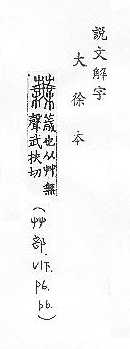 說文解字
大徐本
蕪薉也从艸無
聲武扶切
(艸部.VI下.P6.bb.)